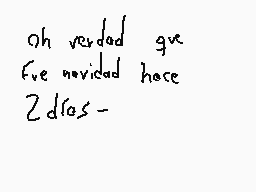 oh verdad que
fue navidad hace
2 dias -